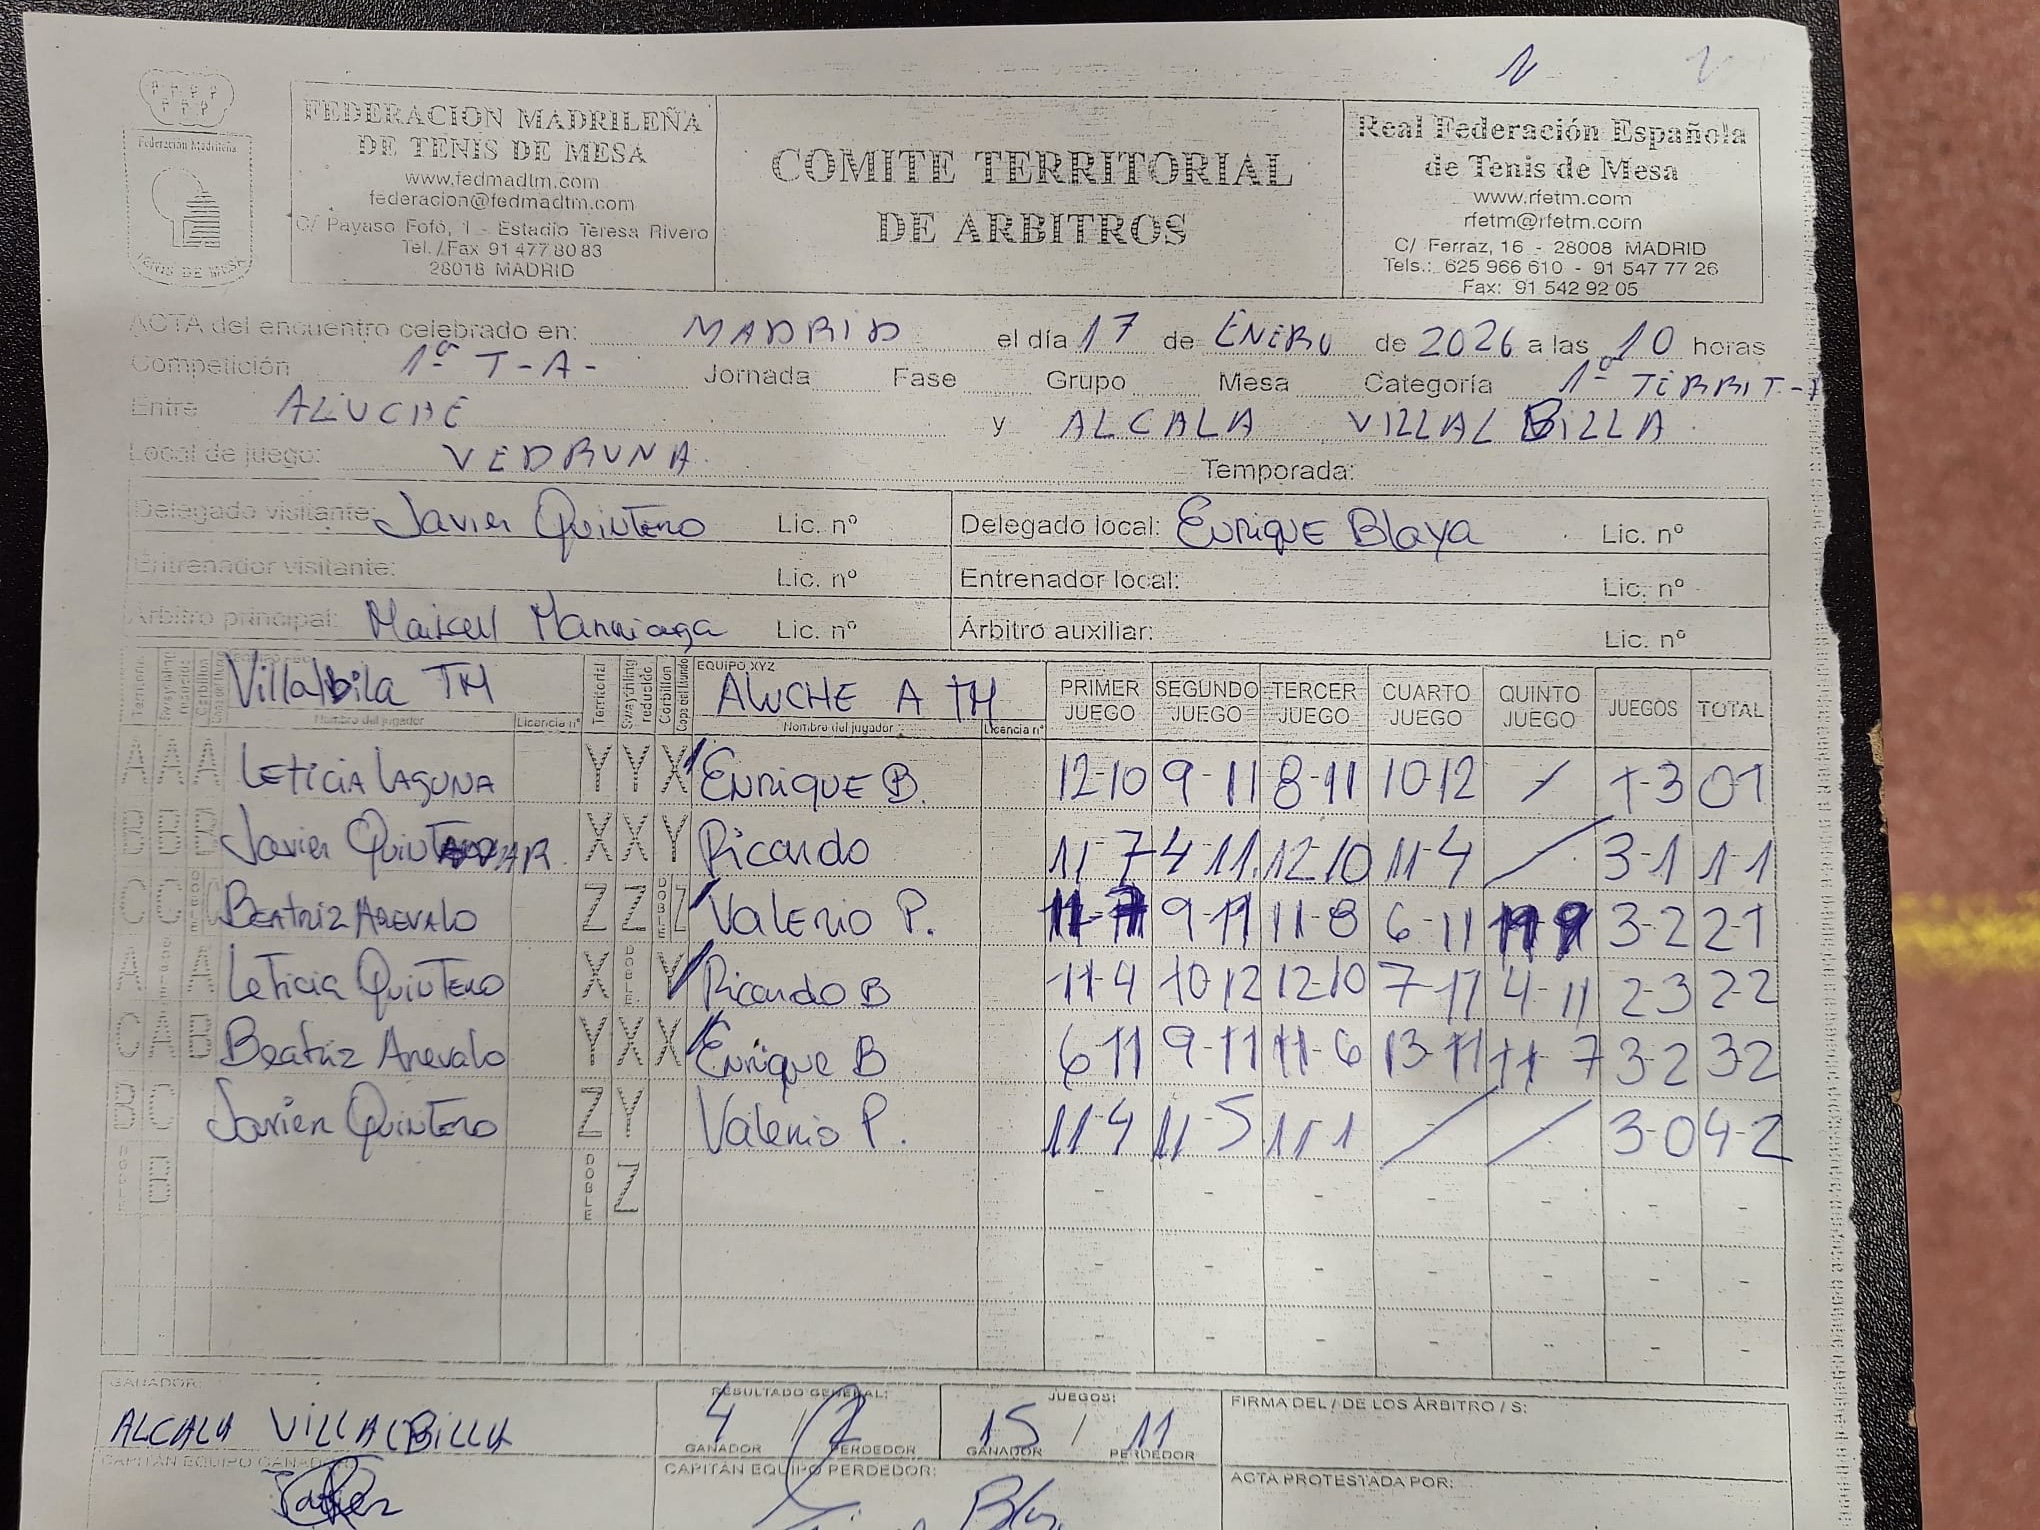 FEDERACION MADRILEÑA
DE TENIS DE MESA
www.fedmadtm.com
federacion@fedmadtm.com
C/ Payaso Fofó, 1 - Estadio Teresa Rivero
Tel./Fax 91 477 80 83
28018 MADRID
Federación Madrileña
TENIS DE MESA
COMITE TERRITORIAL
DE ARBITROS
Real Federación Española
de Tenis de Mesa
www.rfetm.com
rfetm@rfetm.com
C/ Ferraz, 16 - 28008 MADRID
Tels.: 625 966 610 - 91 547 77 26
Fax: 91 542 92 05
ACTA del encuentro celebrado en: MADRID el día 17 de ENERO de 2026 a las 10 horas
Competición 1ª T-A- Jornada Fase Grupo Mesa Categoría 1ª TERRIT-
Entre ALUCHE y ALCALA VILLALBILLA
Local de juego: VEDRUNA Temporada:
Delegado visitante: Javier Quintero Lic. nº Delegado local: Enrique Blaya Lic. nº
Entrenador visitante: Lic. nº Entrenador local: Lic. nº
Arbitro principal: Lic. nº Árbitro auxiliar: Lic. nº
Villalbila TM Territorial Swaythling reducido Corbillon Copa del Mundo EQUIPO XYZ ALUCHE A TM PRIMER JUEGO SEGUNDO JUEGO TERCER JUEGO CUARTO JUEGO QUINTO JUEGO JUEGOS TOTAL
Nombre del jugador Licencia nº Nombre del jugador Licencia nº
A A A LETICIA LAGUNA Y Y X ENRIQUE B. 12-10 9-11 8-11 10-12 / 1-3 0-1
B B B Javier X X Y Ricardo 11-7 4-11 12-10 11-4 / 3-1 1-1
C C DOBLE C BEATRIZ AREVALO Z Z DOBLE Z VALERIO P. 11-7 9-11 11-8 6-11 11-9 3-2 2-1
A A Leticia Quintero X DOBLE Y Ricardo B 11-4 10-12 12-10 7-11 4-11 2-3 2-2
C A B Beatriz Arevalo Y X X Enrique B 6-11 9-11 11-6 13-11 11-7 3-2 3-2
B C Javier Quintero Z Y Valerio P. 11-4 11-5 11-1 / / 3-0 4-2
DOBLE B DOBLE Z - - - -
GANADOR: ALCALA VILLALBILLA
RESULTADO GENERAL: 4 / 2
GANADOR PERDEDOR
JUEGOS: 15 / 11
GANADOR PERDEDOR
FIRMA DEL / DE LOS ÁRBITRO / S:
CAPITÁN EQUIPO GANADOR:
CAPITÁN EQUIPO PERDEDOR:
ACTA PROTESTADA POR: